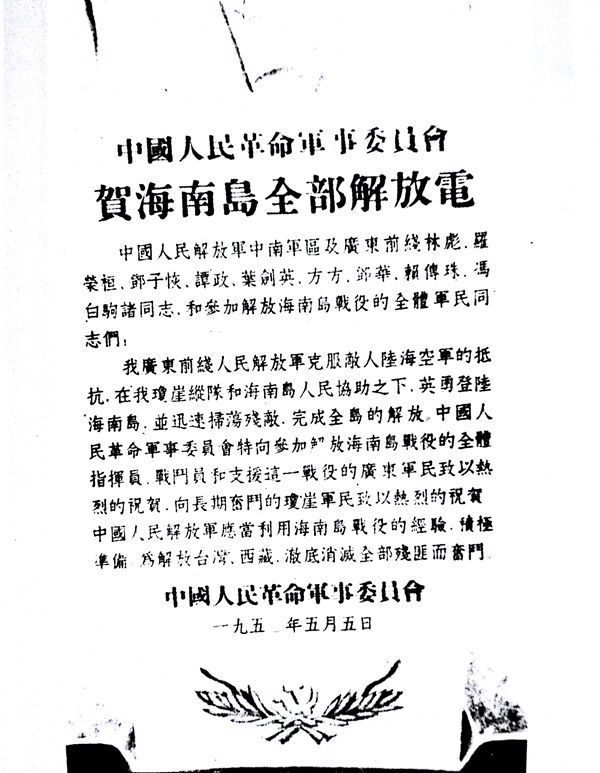 中國人民革命軍事委員會
賀海南島全部解放電
中國人民解放軍中南軍區及廣東前綫林彪、羅
榮桓、鄧子恢、譚政、葉劍英、方方、鄧華、賴傳珠、馮
白駒諸同志，和參加解放海南島戰役的全體軍民同
志們：
我廣東前綫人民解放軍克服敵人陸海空軍的抵
抗，在我瓊崖縱隊和海南島人民協助之下，英勇登陸
海南島，並迅速掃蕩殘敵，完成全島的解放。中國人
民革命軍事委員會特向參加解放海南島戰役的全體
指揮員、戰鬥員和支援這一戰役的廣東軍民致以熱
烈的祝賀，向長期奮鬥的瓊崖軍民致以熱烈的祝賀
中國人民解放軍應當利用海南島戰役的經驗，積極
準備，為解放台灣、西藏，澈底消滅全部殘匪而奮鬥
中國人民革命軍事委員會
一九五 年五月五日